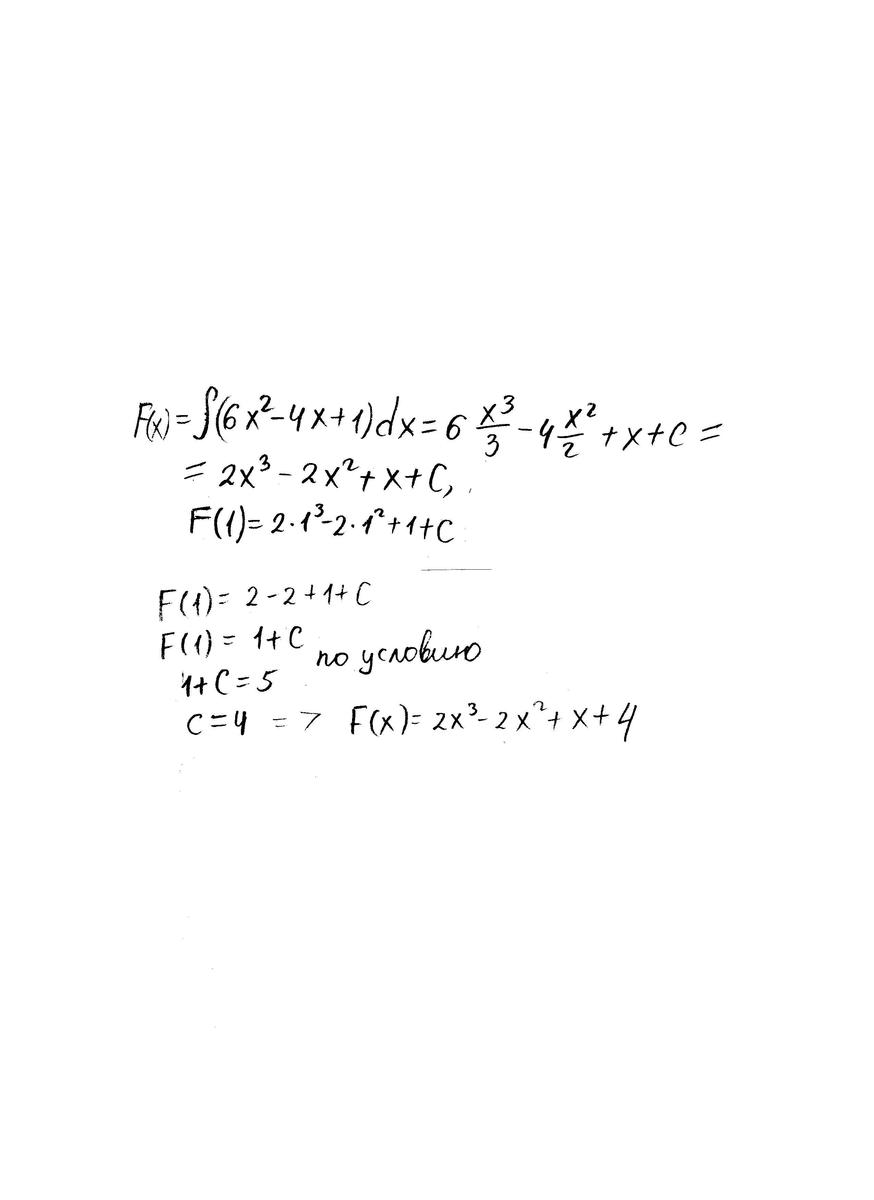 F(x)=∫(6x²-4x+1)dx=6 x³/3 -4 x²/2 +x+C=
= 2x³ - 2x²+x+C,
F(1)=2·1³-2·1²+1+C
F(1)= 2-2+1+C
F(1)= 1+C по условию
1+C=5
C=4 => F(x)= 2x³-2x²+x+4